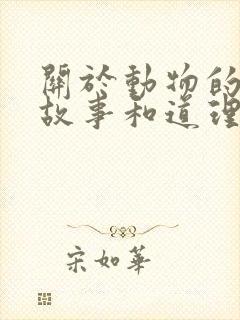 關於動物的
故事和道理
宋如華